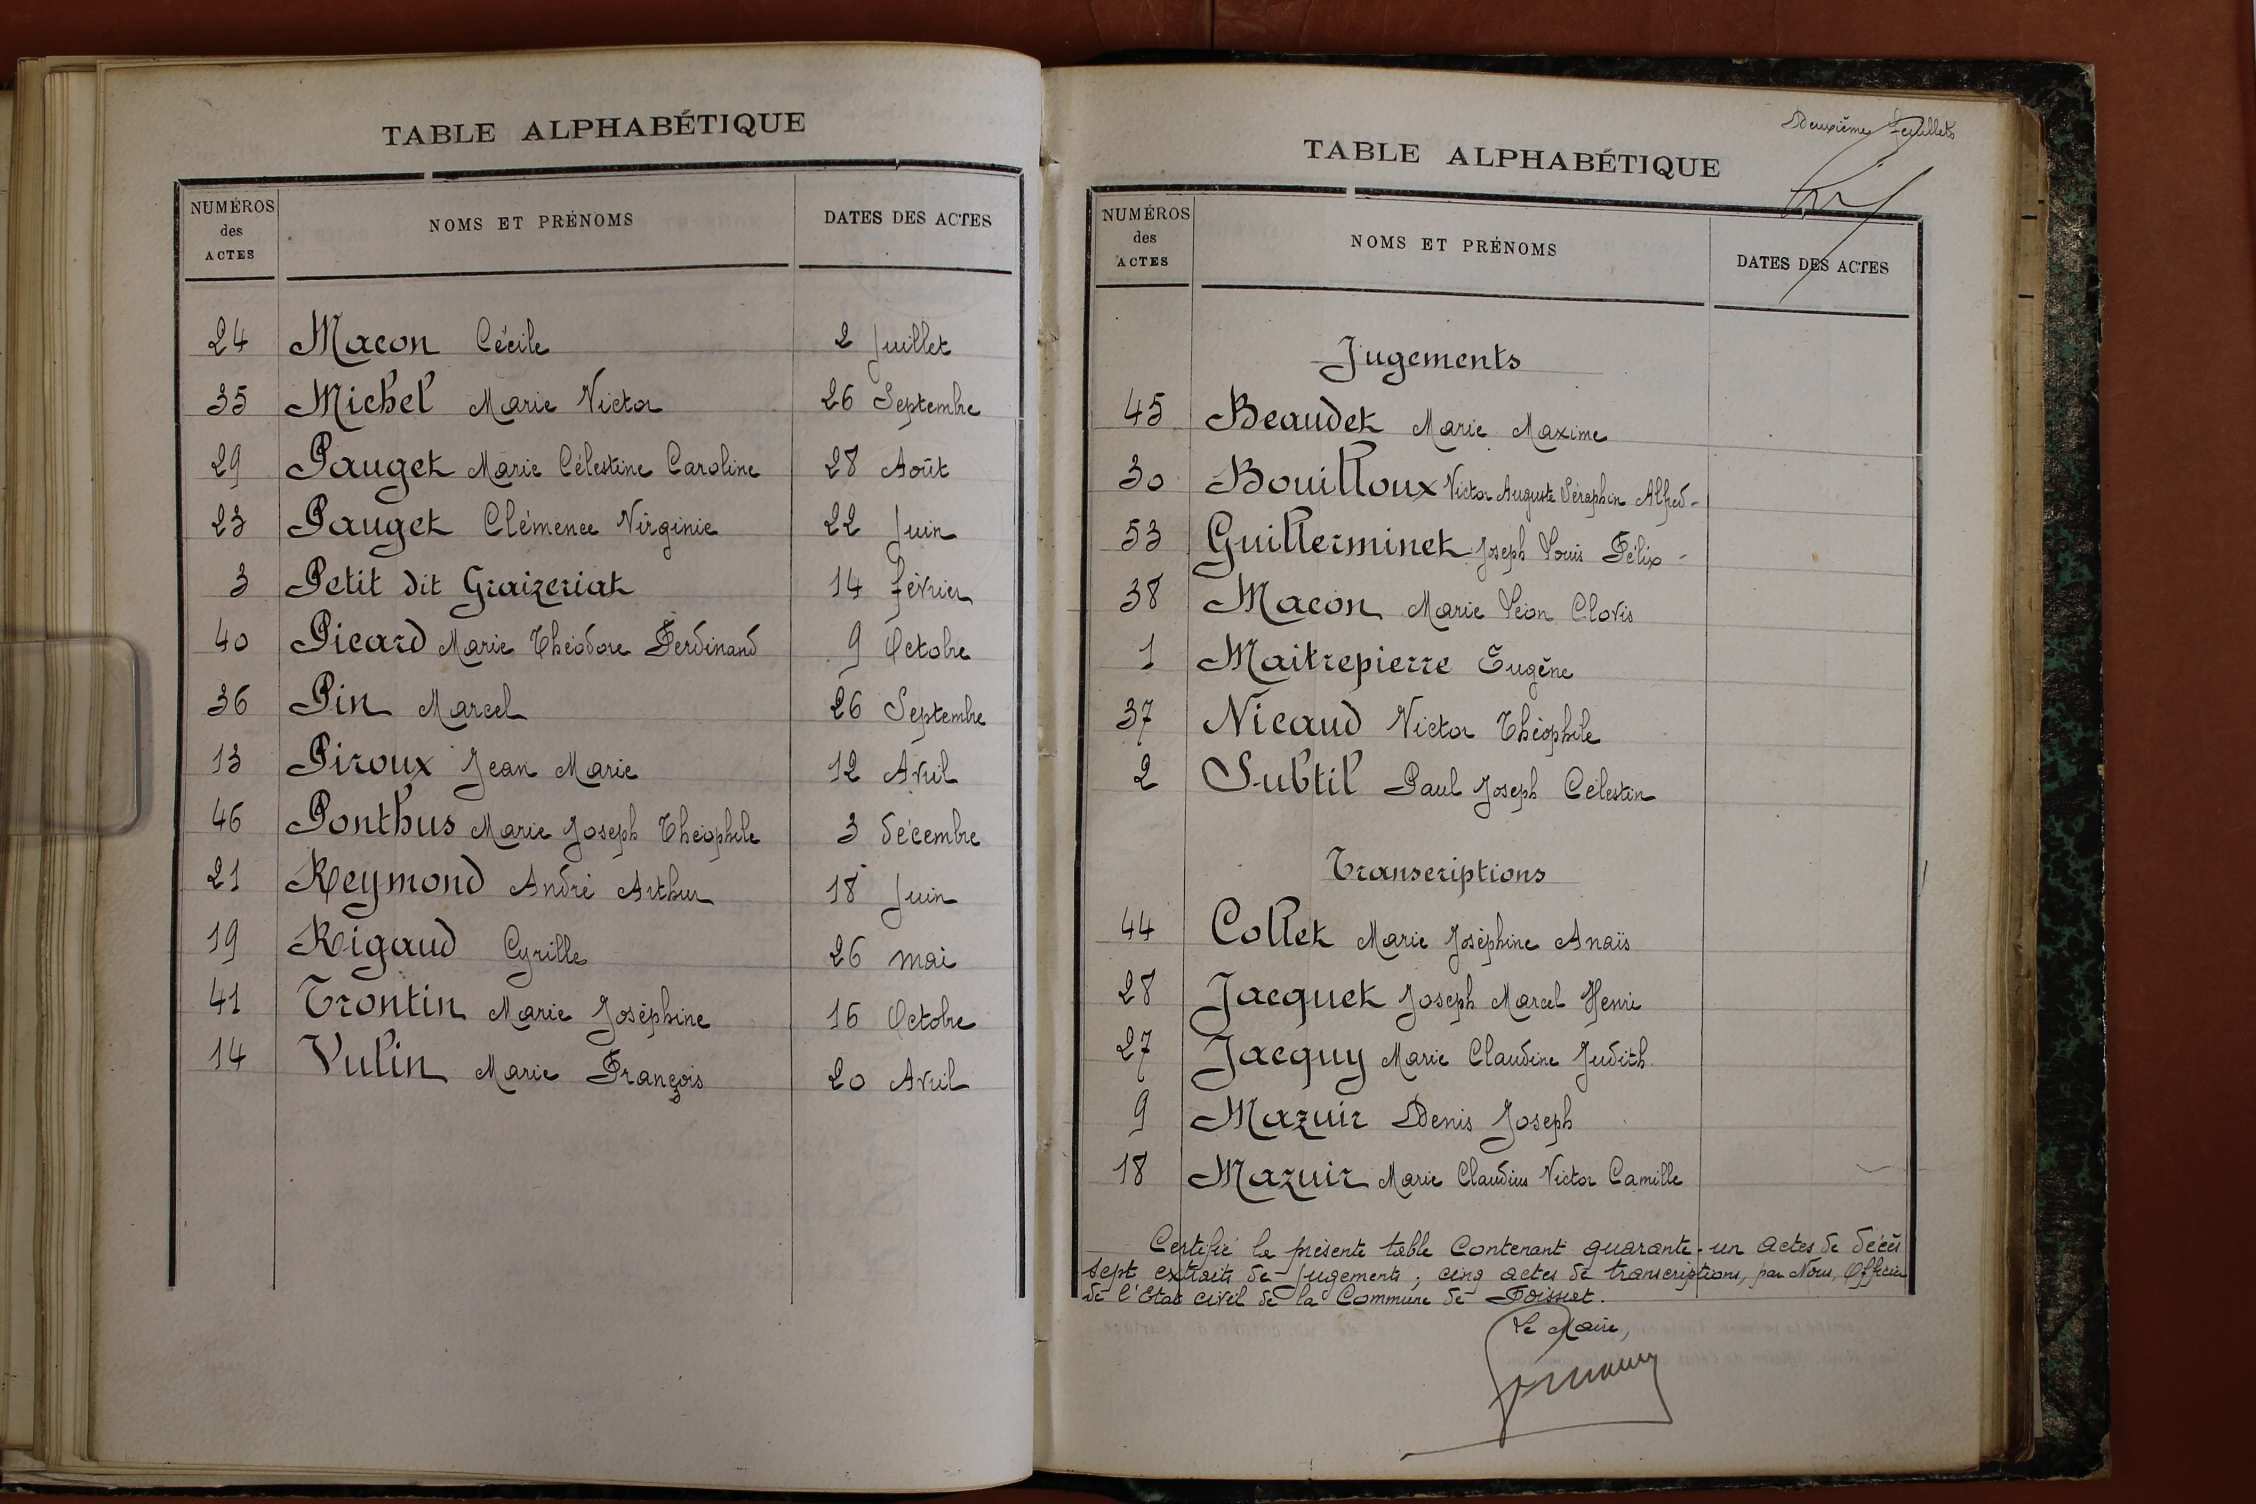 TABLE ALPHABÉTIQUE
NUMÉROS des ACTES NOMS ET PRÉNOMS DATES DES ACTES
24 Macon Cécile 2 Juillet
35 Michel Marie Victor 26 Septembre
29 Pauget Marie Célestine Caroline 28 Août
23 Pauget Clémence Virginie 22 Juin
3 Petit dit Graizeriat 14 février
40 Picard Marie Théodore Ferdinand 9 Octobre
36 Pin Marcel 26 Septembre
13 Piroux Jean Marie 12 Avril
46 Ponthus Marie Joseph Théophile 3 décembre
21 Reymond André Arthur 18 Juin
19 Rigaud Cyrille 26 mai
41 Trontin Marie Joséphine 16 Octobre
14 Vulin Marie François 20 Avril
Deuxième feuillets
TABLE ALPHABÉTIQUE
NUMÉROS des ACTES NOMS ET PRÉNOMS DATES DES ACTES
Jugements
45 Beaudet Marie Maxime
30 Bouilloux Victor Auguste Séraphin Alfred -
53 Guillerminet Joseph Louis Félix -
38 Macon Marie Léon Clovis
1 Maitrepierre Eugène
37 Nicaud Victor Théophile
2 Subtil Paul Joseph Célestin
Transcriptions
44 Collet Marie Joséphine Anaïs
28 Jacquet Joseph Marcel Henri
27 Jacquy Marie Claudine Judith
9 Mazuir Denis Joseph
18 Mazuir Marie Claudius Victor Camille
Certifié la présente table Contenant quarante-un actes de décès
sept extraits de Jugements, cinq actes de transcriptions, par Nous, Officier
de l'Etat civil de la Commune de Foissiat.
Le Maire,